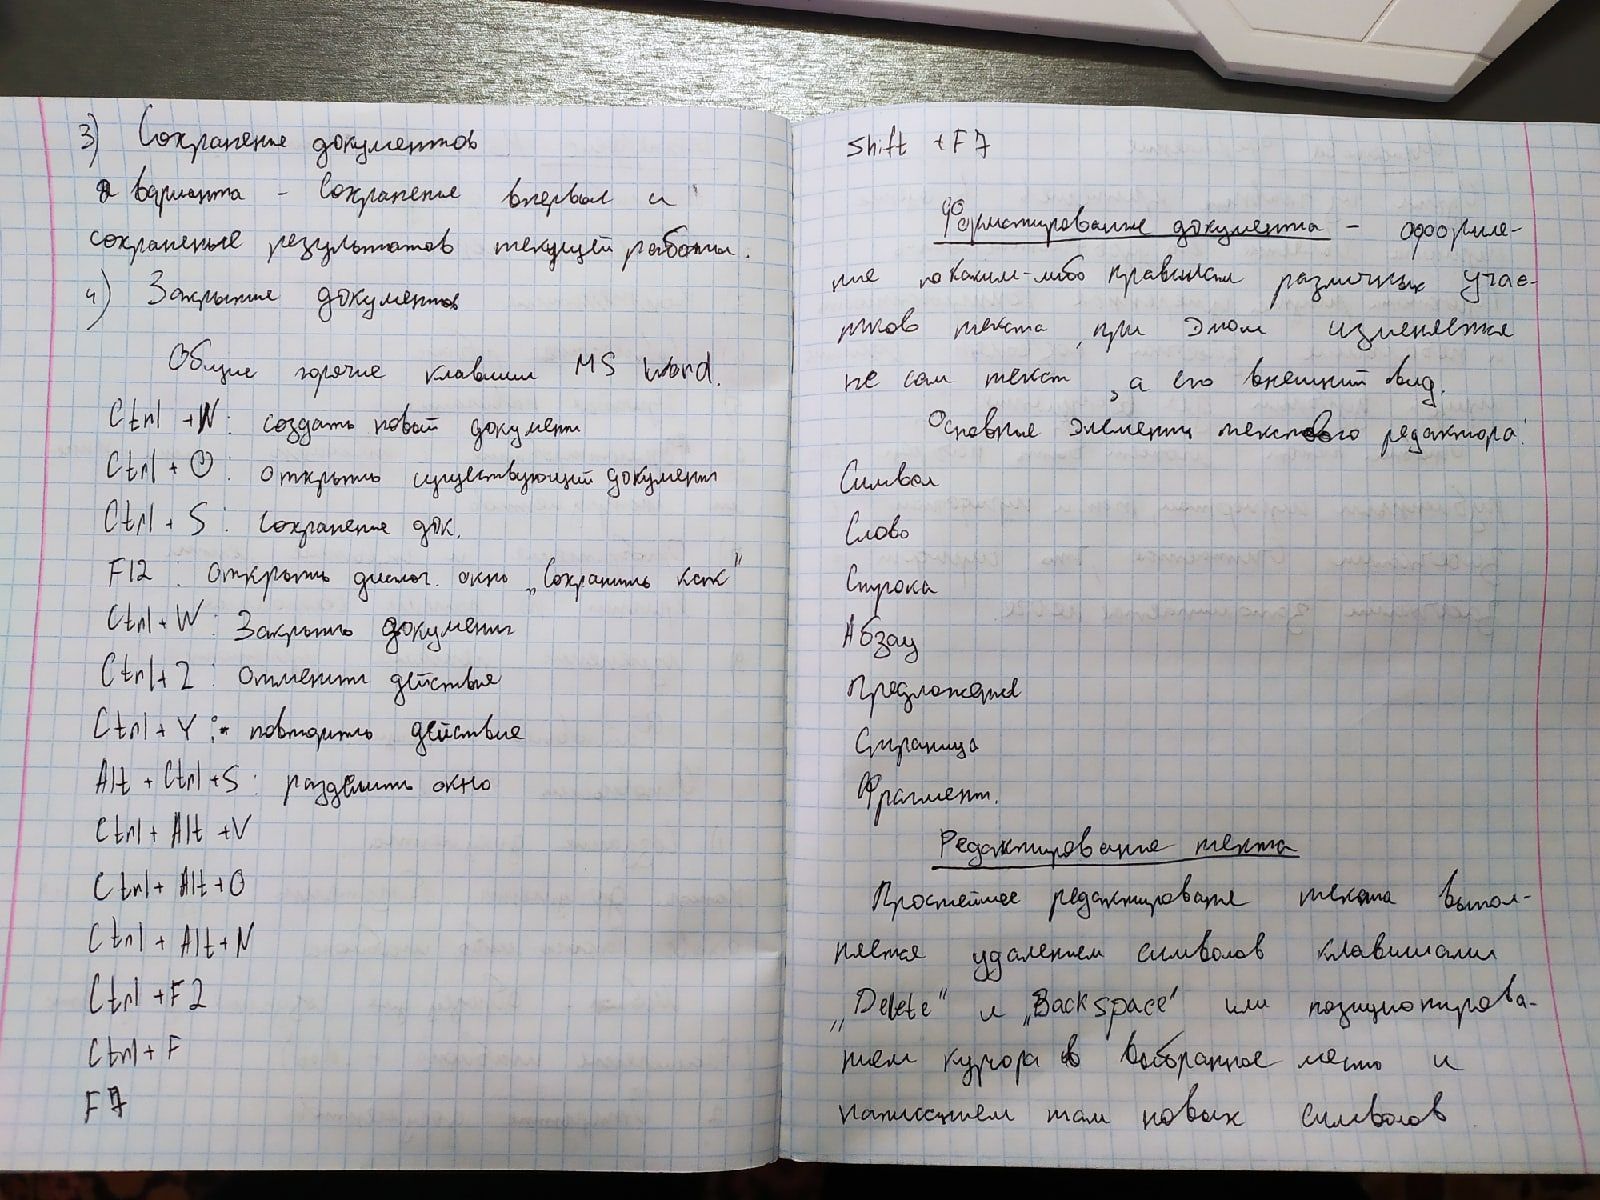 3) Сохранение документов
2 варианта - Сохранение впервые и
сохранение результатов текущей работы.
4) Закрытие документов
Общие горячие клавиши MS Word.
Ctrl + N: создать новый документ
Ctrl + O: открыть существующий документ
Ctrl + S: сохранение док.
F12: Открыть диалог. окно „Сохранить как"
Ctrl + W: Закрыть документ
Ctrl + Z: отменить действие
Ctrl + Y: повторить действие
Alt + Ctrl + S: разделить окно
Ctrl + Alt + V
Ctrl + Alt + O
Ctrl + Alt + N
Ctrl + F2
Ctrl + F
F7
Shift + F7
Форматирование документа - оформле-
ние по каким-либо правилам различных учас-
тков текста, при этом изменяется
не сам текст, а его внешний вид.
Основные элементы текстового редактора:
Символ
Слово
Строка
Абзац
Предложение
Страница
Фрагмент.
Редактирование текста
Простейшее редактирование текста выпол-
няется удалением символов клавишами
„Delete" и „Backspace" или позиционирова-
нием курсора в выбранное место и
написанием там новых символов